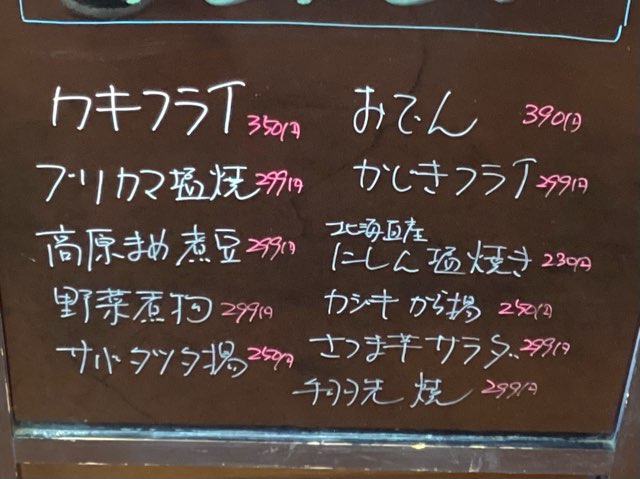 カキフライ 350円
ブリカマ塩焼 299円
高原まめ煮豆 299円
野菜煮物 299円
サバタツタ揚 250円
おでん 390円
かじきフライ 299円
北海道産
にしん塩焼き 230円
カジキから揚 250円
さつま芋サラダ 299円
手羽先焼 299円